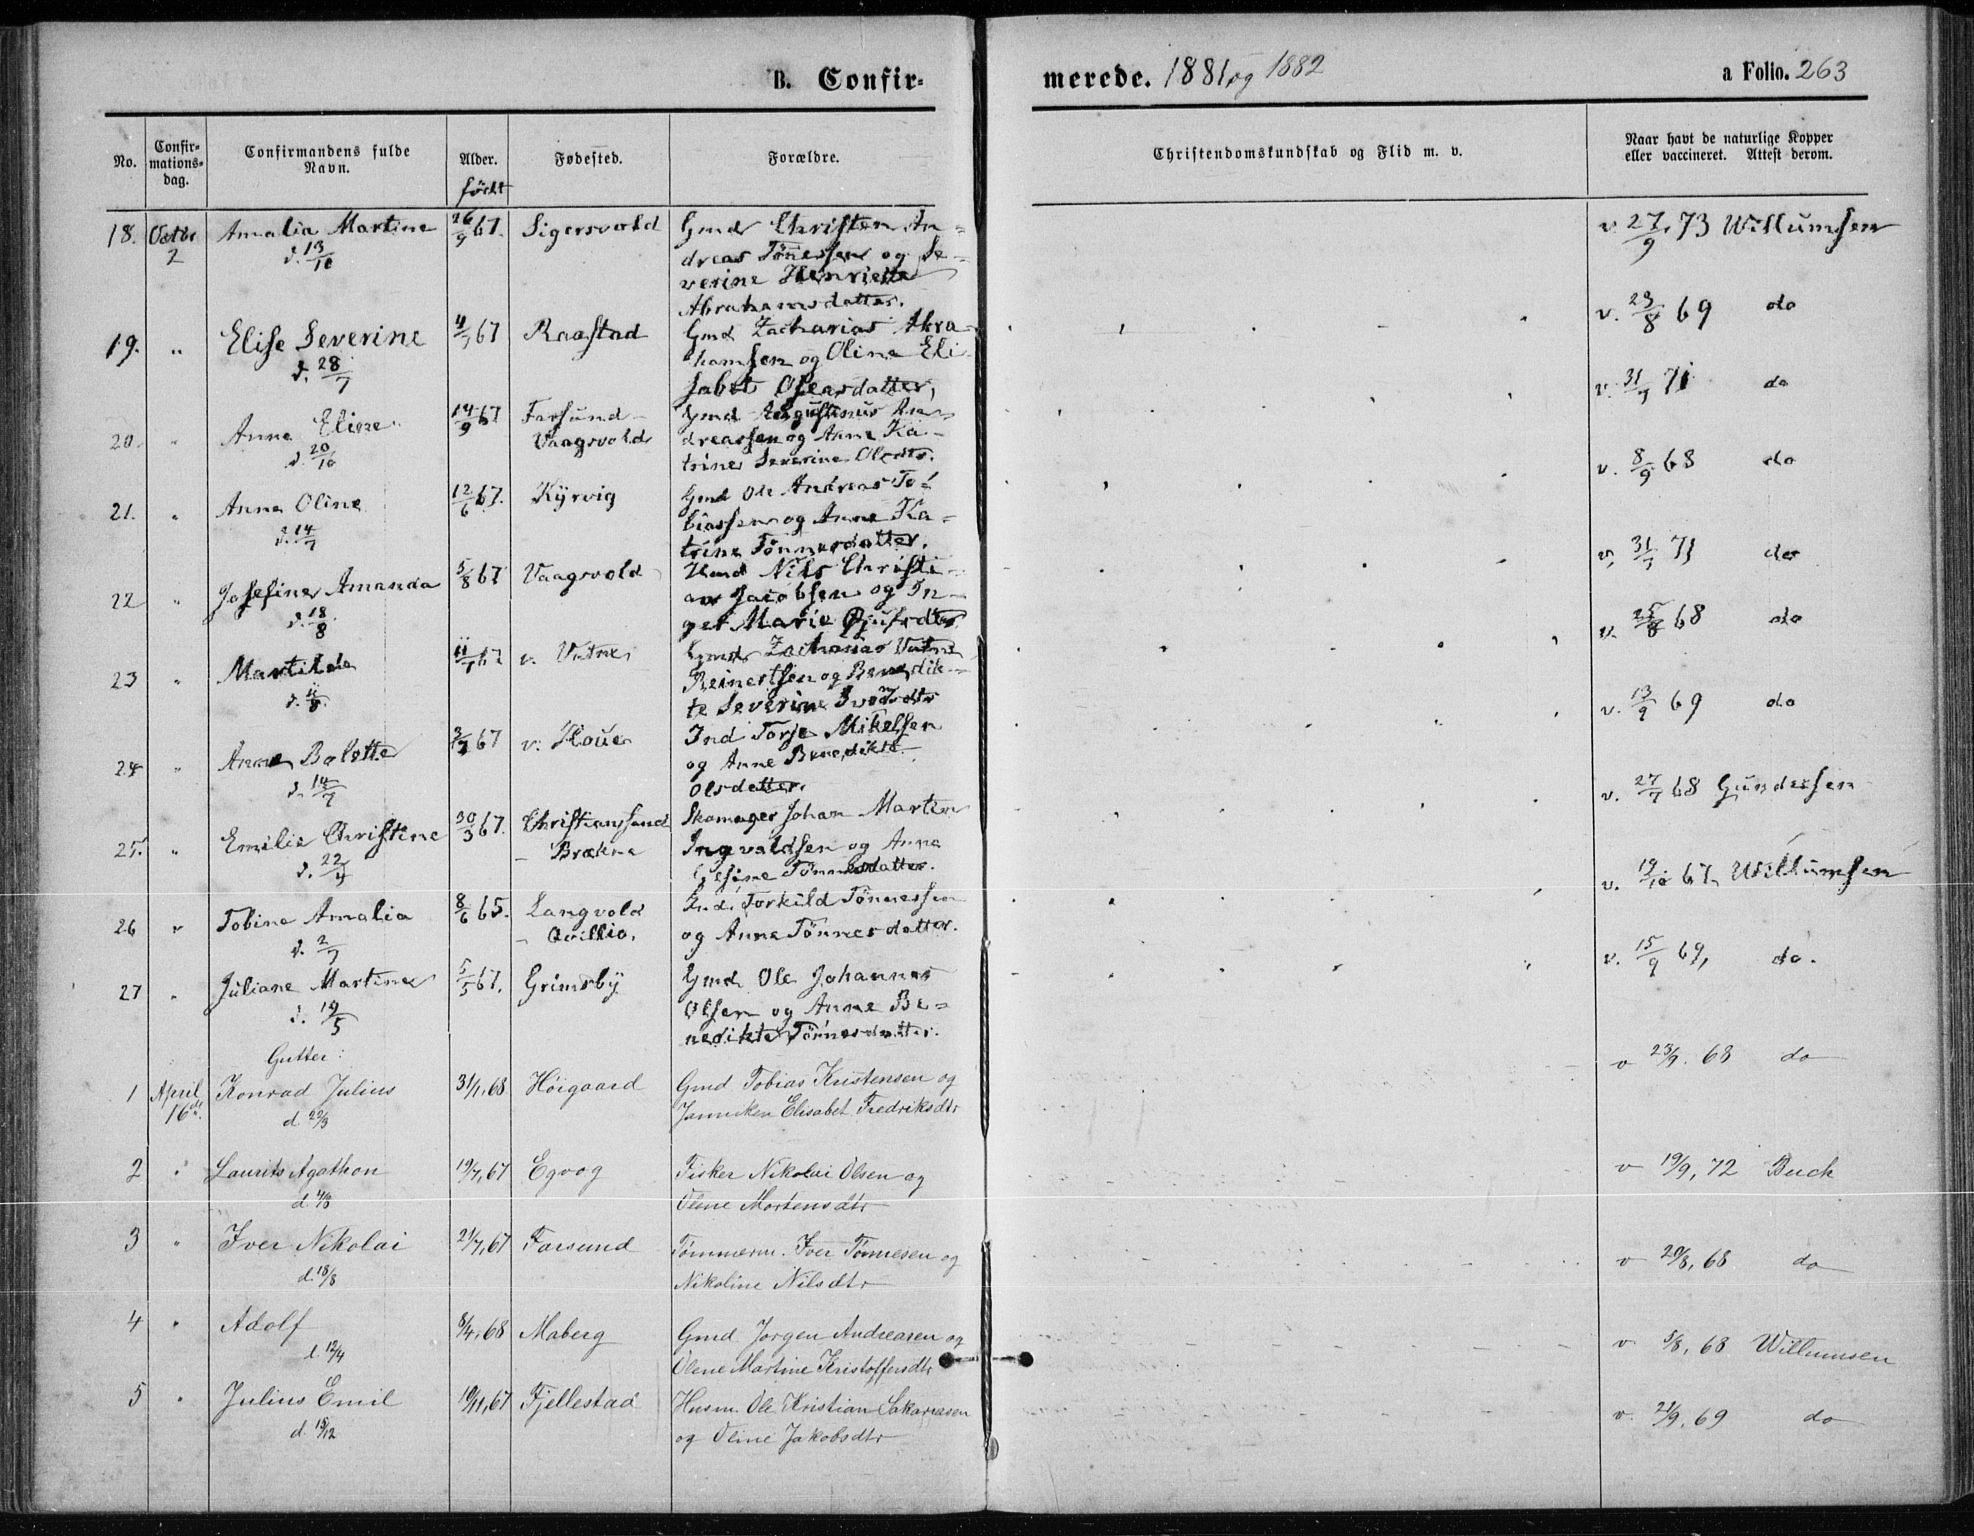 B. Confir-
merede. 1881 og 1882
a Folio. 263
No.
Confir-
mations-
dag.
Confirmandens fulde
Navn.
Alder.
født
Fødested.
Forældre.
Christendomskundskab og Flid m. v.
Naar havt de naturlige Kopper
eller vaccineret. Attest derom.
18. Octbr Amalia Martine 26/9 67. Sigersvold Gmd Christen An-
2 d. 13/10 dreas Tönnessen og Se-
verine Henriette
Abrahamsdatter.
v 27/9 73 Willumsen
19. " Elise Severine 4/7 67 Raastad Gmd Zacharias Abra-
d. 28/7 hamsen og Oline Eli
sabet Osearsdatter,
v. 23/8 69 do
20. " Anne Eline 14/9 67 Farsund- Gmd Augustinus An-
d. 20/10 Vaagsvold dreassen og Anne Ka-
trine Severine Olsdtr.
v. 31/7 71 do
21. " Anna Oline 12/6 67. Kÿrvig Gmd Ole Andreas To-
d. 14/7 biassen og Anne Ka-
trine Tönnesdatter.
v. 8/9 68 do
22 " Josefine Amanda 5/8 67 Vaagsvold Hmd Nils Christi-
d. 18/8 an Jacobsen og In-
ger Marie
v. 31/7 71 do
23 " Martilde v. Vatne Gmd Zacharias
Reinertsen og Benedik-
te Severine
v. 25/8 68 do
24 " Anne Bolette 67 v. Houe Ind Torje Mikelsen
d. 14/7 og Anne Benedikte
Olsdatter.
v. 13/9 69 do
25. " Emilie Christine 30/3 67. Christianssand Skomager Johan Martin
d. 22/4 - Brækne Ingvaldsen og Anna
Gesine Tönnesdatter.
v. 27/7 68 Gundersen
26 " Tobine Amalia 8/6 65. Langvold Ind. Torkild Tönnessen
d. 2/7 - Qvillio, og Anne Tönnesdatter.
v. 19/10 67, Willumsen
27 " Juliane Martine 5/5 67. Grimsby Gmd Ole Johannes
d. 19/5 Olsen og Anne Be-
nedikte Tönnesdatter.
v. 15/9 69, do.
Gutter:
1 April Konrad Julius 31/1, 68 Höigaard Gmd Tobias Kristensen og
16de. d. 22/3 Janniken Elisabet Fredriksdtr
v 23/9. 68 do
2 " Laurits Agathon 19/7, 67 Egvog Fisker Nikolai Olsen og
d. 4/8 Oline Mortensdtr
v 19/9, 72 Buch
3 " Iver Nikolai 21/7, 67 Farsund Tømmerm. Iver Tønnesen og
d. 18/8 Nikoline Nilsdtr
v 20/8, 68 do
4 " Adolf 8/4, 68 Maberg Gmd Jørgen Andreasen og
d. 12/4 Olene Martine Kristoffersdtr
v 5/8, 68 Willumsen
5 " Julius Emil 10/11, 67 Fjellestad Husm. Ole Kristian Sakariasen
d. 15/12 og Oline Jakobsdtr
v. 21/9, 69 do